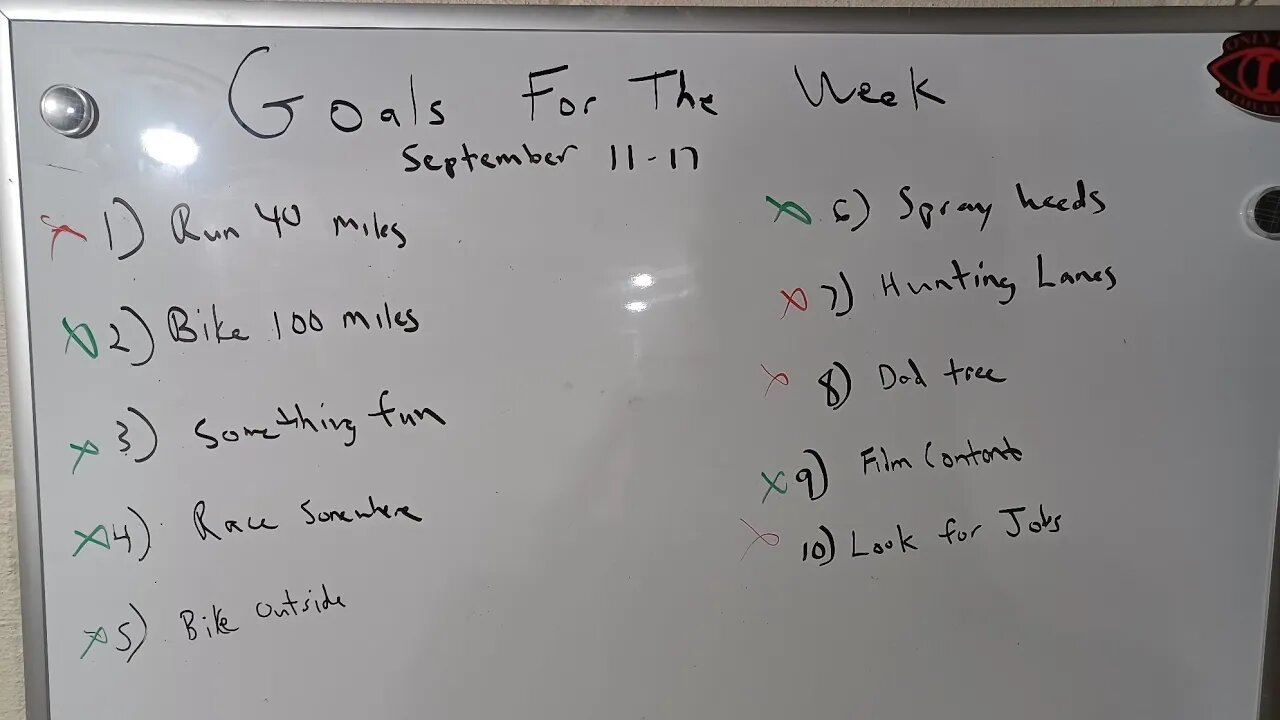 Goals For The Week
September 11-17
1) Run 40 miles
2) Bike 100 miles
3) Something fun
4) Race Somewhere
5) Bike outside
6) Spray weeds
7) Hunting Lanes
8) Dad tree
9) Film Content
10) Look for Jobs